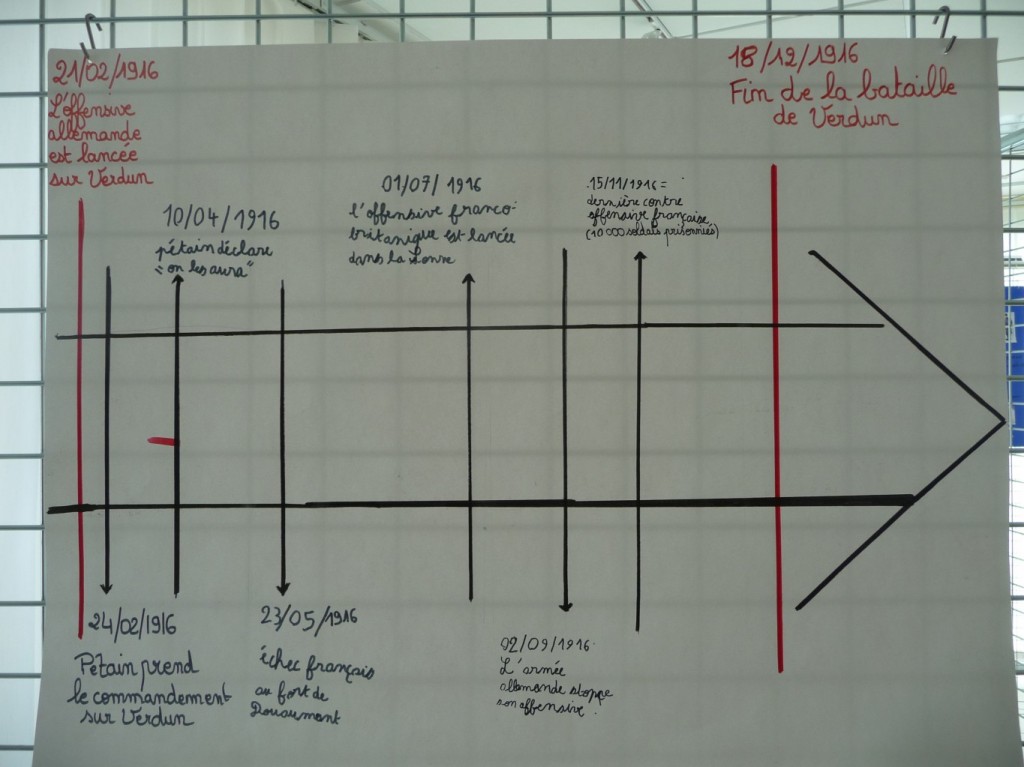 21/02/1916
L'offensive
allemande
est lancée
sur Verdun
18/12/1916
Fin de la bataille
de Verdun
10/04/1916
pétain déclare
"on les aura"
01/07/1916
l'offensive franco-
britanique est lancée
dans la Somre
15/11/1916=
dernière contre
offensive française
(10 000 soldats prisonniés)
24/02/1916
Pétain prend
le commandement
sur Verdun
23/05/1916
échec français
au fort de
Douaumont
02/09/1916
L'armée
allemande stoppe
son offensive.